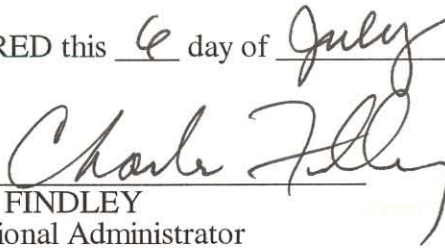 RED this 6 day of July
Charles Findley
FINDLEY
ional Administrator